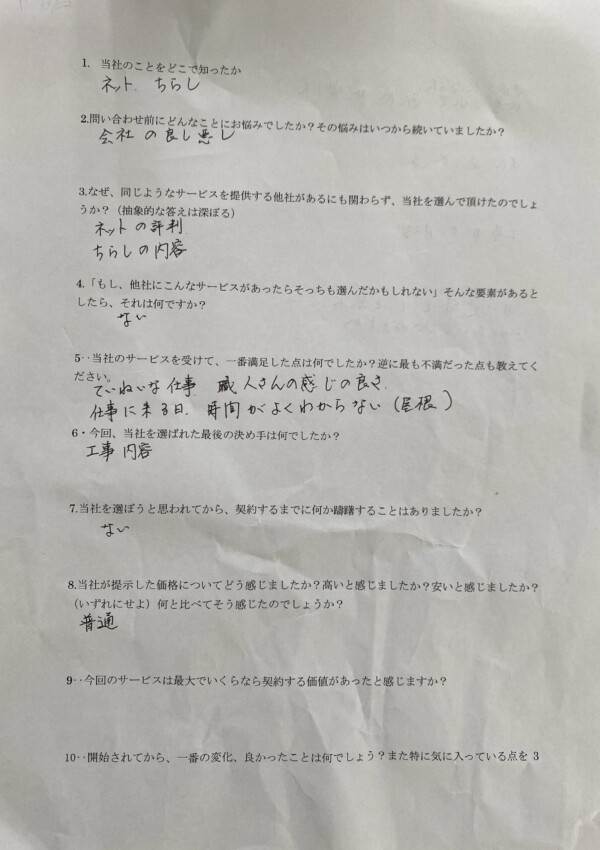 1. 当社のことをどこで知ったか
ネット ちらし
2.問い合わせ前にどんなことにお悩みでしたか？その悩みはいつから続いていましたか？
会社の良し悪し
3.なぜ、同じようなサービスを提供する他社があるにも関わらず、当社を選んで頂けたのでしょ
うか？（抽象的な答えは深ぼる）
ネットの評判
ちらしの内容
4.「もし、他社にこんなサービスがあったらそっちも選んだかもしれない」そんな要素があると
したら、それは何ですか？
ない
5‥当社のサービスを受けて、一番満足した点は何でしたか？逆に最も不満だった点も教えてく
ださい。
ていねいな仕事 職人さんの感じの良さ
仕事に来る日. 時間がよくわからない（屋根）
6・今回、当社を選ばれた最後の決め手は何でしたか？
工事内容
7.当社を選ぼうと思われてから、契約するまでに何か躊躇することはありましたか？
ない
8.当社が提示した価格についてどう感じましたか？高いと感じましたか？安いと感じましたか？
（いずれにせよ）何と比べてそう感じたのでしょうか？
普通
9‥今回のサービスは最大でいくらなら契約する価値があったと感じますか？
10‥開始されてから、一番の変化、良かったことは何でしょう？また特に気に入っている点を 3